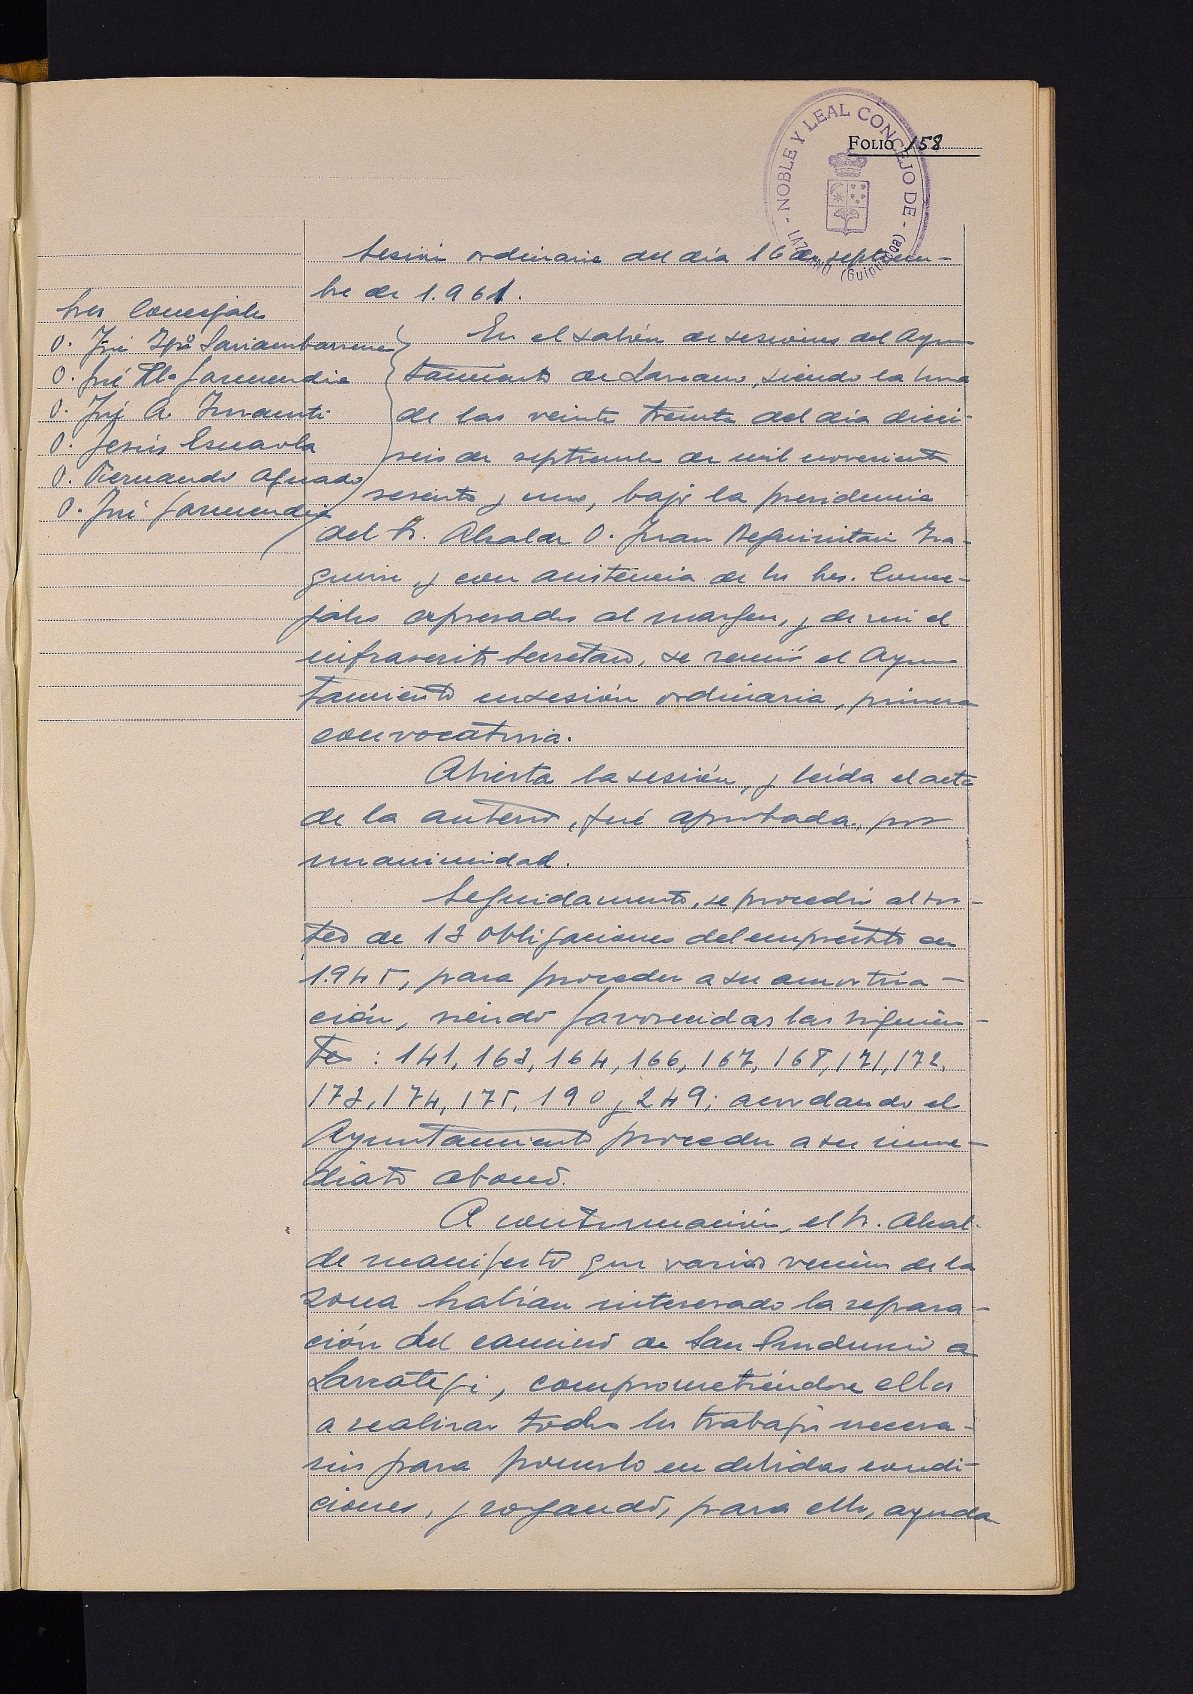 NOBLE Y LEAL CONCEJO DE - LAZCANO (Guipúzcoa)
FOLIO 158
Sesión ordinaria del dia 16 de septiem-
bre de 1.961.
Sres Concejales
D. José Igº Sarriambarrena
D. José Mª Garmendia
D. José A.
D. Jesús Esnaola
D. Fernando Aguado
D. José Garmendia
En el salón de sesiones del Ayun
tamiento de Lazcano, siendo la hora
de las veinte treinta del dia dieci-
seis de septiembre de mil novecientos
sesenta y uno, bajo la presidencia
del Sr. Alcalde D. Juan Beguiristain Ira-
y con asistencia de los Sres. Conce-
jales expresados al margen, y de mi el
infrascrito Secretario, se reunió el Ayun
tamiento en sesión ordinaria, primera
convocatoria.
Abierta la sesión, y leida el acta
de la anterior, fué aprobada, por
unanimidad.
Seguidamente, se procedió al sor-
teo de 13 obligaciones del empréstito de
1.945, para proceder a su amortiza-
ción, siendo favorecidas las siguien-
tes: 141, 163, 164, 166, 167, 168, 171, 172,
173, 174, 175, 190 y 249; acordando el
Ayuntamiento proceder a su inme-
diato abono.
A continuación, el Sr. Alcal-
de manifestó que varios vecinos de la
zona habian interesado la repara-
ción del camino de San Prudencio a
Lazcategi, comprometiéndose ellos
a realizar todos los trabajos necesa-
rios para ponerlo en debidas condi-
ciones, y rogando, para ello, ayuda